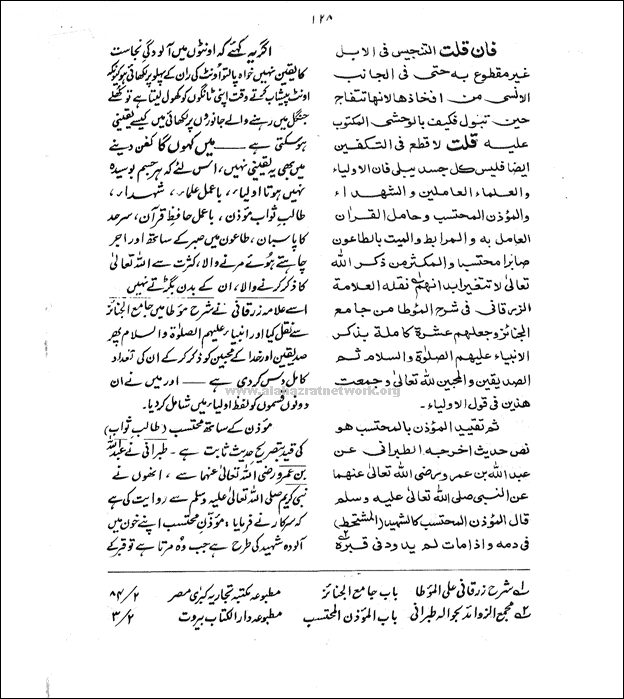 ١٢٨
فان قلت التنجيس فى الابل
غير مقطوع به حتى فى الجانب
الانسى من افخاذها لانها تتفاج
حين تبول فكيف بالوحشى المكتوب
عليه قلت لا قطع فى التكفين
ايضا فليس كل جسد يبلى فان الاولياء
والعلماء العاملين والشهداء
والمؤذن المحتسب وحامل القران
العامل به والمرابط والميت بالطاعون
صابرا محتسبا والمكثر من ذكر الله
تعالى لا تتغير ابدانهم نقله العلامة
الزرقانى فى شرح المؤطا من جامع
الجنائز وجعلهم عشرة كاملة بذكر
الانبياء عليهم الصلوة والسلام ثم
الصديقين والمحبين لله تعالى وجمعت
هذين فى قول الاولياء۔
ثم تقييد المؤذن بالمحتسب هو
نص حديث اخرجه الطبرانى عن
عبدالله بن عمرو رضى الله تعالى عنهما
عن النبى صلى الله تعالى عليه وسلم
قال المؤذن المحتسب كالشهيد (المتشحط)
فى دمه واذا مات لم يدود فى قبره
اگر یہ کہئے کہ اونٹوں میں آلودگیِ نجاست
کا یقین نہیں خواہ پالتو اونٹ کی ران کے پہلو پر لکھائی ہو کیونکہ
اونٹ پیشاب کرتے وقت اپنی ٹانگوں کو کھول لیتا ہے تو کھلے
جنگل میں رہنے والے جانوروں پر لکھائی میں کیسے یقینی
ہو سکتی ہے — میں کہوں گا کفن دینے
میں بھی یہ یقینی نہیں، اس لئے کہ ہر جسم بوسیدہ
نہیں ہوتا اولیاء، باعمل علماء، شہداء،
طالبِ ثواب مؤذن، باعمل حافظِ قرآن، سرحد
کا پاسبان، طاعون میں صبر کے ساتھ اور اجر
چاہتے ہوئے مرنے والا، کثرت سے اللہ تعالیٰ
کا ذکر کرنے والا، ان کے بدن بگڑتے نہیں
اسے علامہ زرقانی نے شرح مؤطا میں جامع الجنائز
سے نقل کیا اور انبیاء علیہم الصلوٰۃ والسلام پھر
صدیقین اور خدا کے محبین کو ذکر کر کے ان کی تعداد
کامل دس کر دی ہے — اور میں نے ان
دونوں قسموں کو لفظ اولیاء میں شامل کر دیا۔
مؤذن کے ساتھ محتسب (طالبِ ثواب)
کی قید بتصریحِ حدیث ثابت ہے۔ طبرانی نے عبداللہ
بن عمرو رضی اللہ تعالیٰ عنہما سے، انھوں نے
نبی کریم صلی اللہ تعالیٰ علیہ وسلم سے روایت کی ہے
کہ سرکار نے فرمایا: مؤذن محتسب اپنے خون میں
آلودہ شہید کی طرح ہے جب وہ مرتا ہے تو قبر کے
www.alahazratnetwork.org
۱؎ شرح زرقانی علی المؤطا باب جامع الجنائز مطبوعہ مکتبہ تجاریہ کبرٰی مصر ۲/۸۴
۲؎ مجمع الزوائد بحوالہ طبرانی باب المؤذن المحتسب مطبوعہ دار الکتاب بیروت ۲/۳